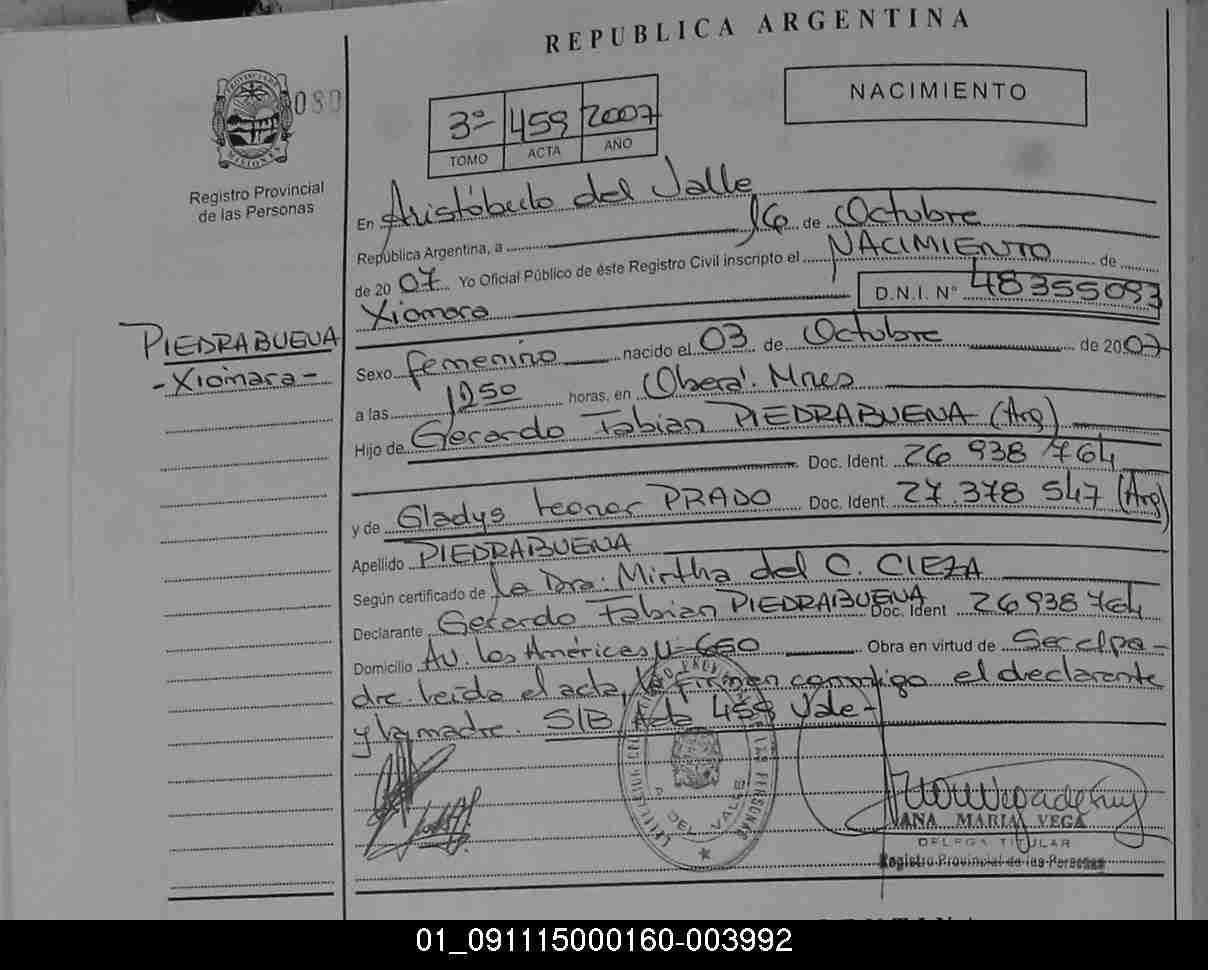 REPUBLICA ARGENTINA
PROVINCIA DE
MISIONES
080
Registro Provincial
de las Personas
3º 459 2007
TOMO ACTA AÑO
NACIMIENTO
En Aristóbulo del Valle
República Argentina, a 16 de Octubre
de 20 07 Yo Oficial Público de éste Registro Civil inscripto el NACIMIENTO de
Xiomara D.N.I. Nº 48355093
PIEDRABUENA
- Xiomara -
Sexo femenino nacido el 03 de Octubre de 2007
a las 1250 horas, en Oberá. Mnes
Hijo de Gerardo Fabian PIEDRABUENA (Arg)
Doc. Ident. 26 938 764
y de Gladys Leonor PRADO Doc. Ident. 27.378 547 (Arg)
Apellido PIEDRABUENA
Según certificado de la Dra: Mirtha del C. CIEZA
Declarante Gerardo Fabian PIEDRABUENA Doc. Ident 26938764
Domicilio Av. las Américas Nº 660 Obra en virtud de Ser el pa-
dre leida el acta, la firman conmigo el declarante
y la madre. S/B Acta 459 Vale-
A. DEL VALLE
LAS PERSONAS
ANA MARIA VEGA
DELEGA TITULAR
Registro Provincial de las Personas
01_091115000160-003992